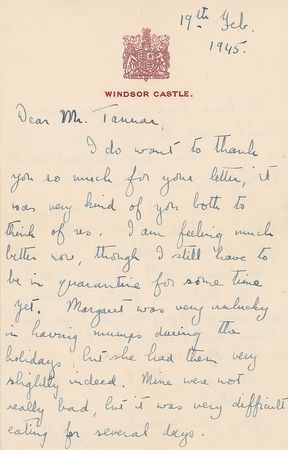 19th Feb.
1945.
WINDSOR CASTLE.
Dear Mr. Tannar,
I do want to thank
you so much for your letter, it
was very kind of you both to
think of us. I am feeling much
better now, though I still have to
be in quarantine for some time
yet. Margaret was very unlucky
in having mumps during the
holidays, but she had them very
slightly indeed. Mine were not
really bad, but it was very difficult
eating for several days.